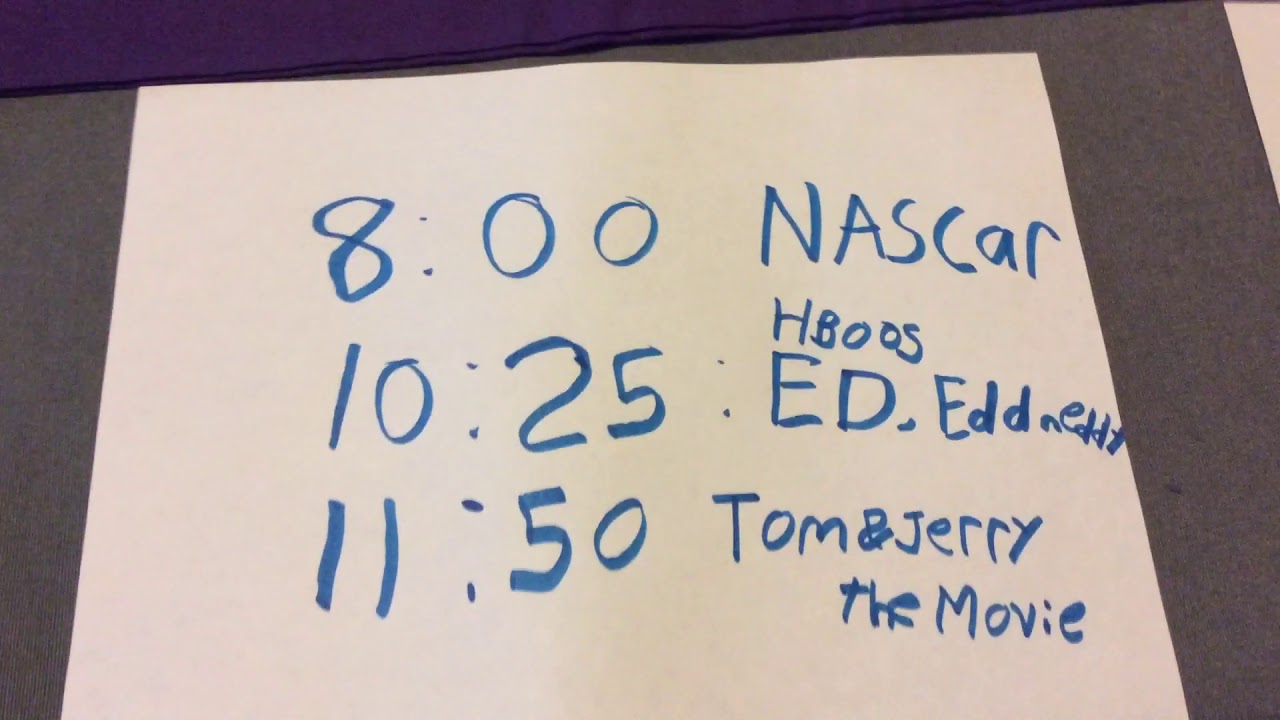 8:00 NASCar
HBOOS
10:25: ED. Edd neddy
11:50 Tom&Jerry
the Movie